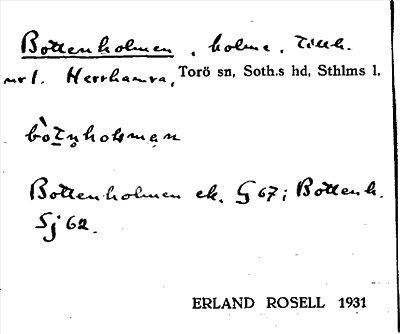 Bottenholmen, holme, Tillh.
nr 1. Herrhamra, Torö sn, Soth.s hd, Sthlms l.
bòtnholman
Bottenholmen ek. G 67; Bottenh.
Sj 62.
ERLAND ROSELL 1931